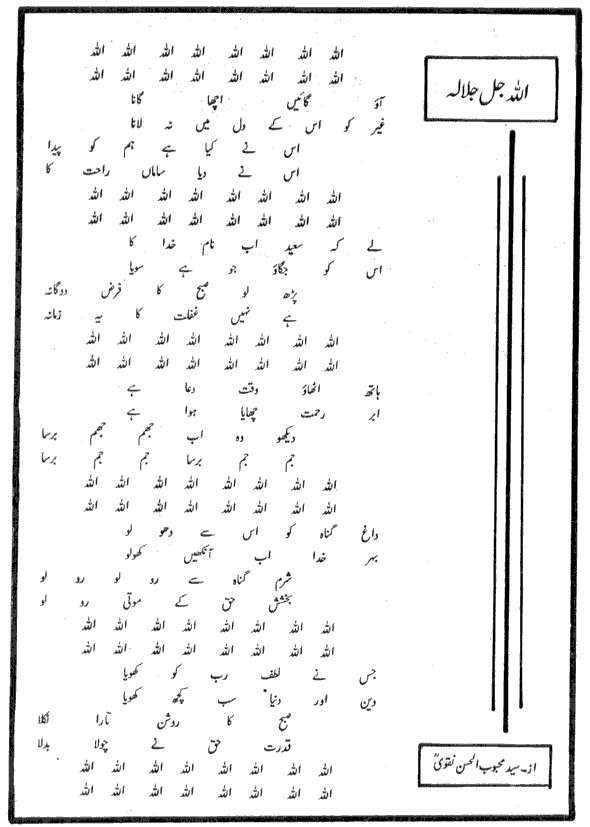 اللہ جل جلالہ
اللہ اللہ اللہ اللہ اللہ اللہ اللہ اللہ
اللہ اللہ اللہ اللہ اللہ اللہ اللہ اللہ
آؤ گائیں اچھا گانا
غیر کو اس کے دل میں نہ لانا
اس نے کیا ہے ہم کو پیدا
اس نے دیا ساماں راحت کا
اللہ اللہ اللہ اللہ اللہ اللہ اللہ اللہ
اللہ اللہ اللہ اللہ اللہ اللہ اللہ اللہ
لے کہ سعید اب نام خدا کا
اس کو جگاؤ جو ہے سویا
پڑھ لو صبح کا فرض دوگانہ
ہے نہیں غفلت کا یہ زمانہ
اللہ اللہ اللہ اللہ اللہ اللہ اللہ اللہ
اللہ اللہ اللہ اللہ اللہ اللہ اللہ اللہ
ہاتھ اٹھاؤ وقت دعا ہے
ابر رحمت چھایا ہوا ہے
دیکھو وہ اب جھم جھم برسا
جم جم برسا جم جم برسا
اللہ اللہ اللہ اللہ اللہ اللہ اللہ اللہ
اللہ اللہ اللہ اللہ اللہ اللہ اللہ اللہ
داغ گناہ کو اس سے دھو لو
بہر خدا اب آنکھیں کھولو
شرم گناہ سے رو لو رو لو
بخشش حق کے موتی رو لو
اللہ اللہ اللہ اللہ اللہ اللہ اللہ اللہ
اللہ اللہ اللہ اللہ اللہ اللہ اللہ اللہ
جس نے لطف رب کو کھویا
دین اور دنیا سب کچھ کھویا
صبح کا روشن تارا نکلا
قدرت حق نے چولا بدلا
اللہ اللہ اللہ اللہ اللہ اللہ اللہ اللہ
اللہ اللہ اللہ اللہ اللہ اللہ اللہ اللہ
از۔ سید محبوب الحسن نقویؒ